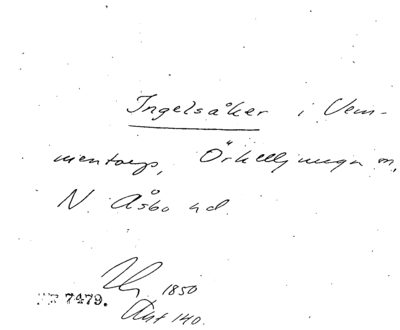 Ingelsåker i Vem-
mentorp, Örkelljunga sn,
N. Åsbo hd.
1850
7479.
Akt 140.